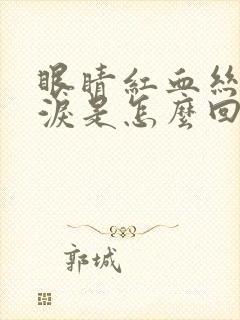 眼睛紅血絲
淚是怎麼回
郭城